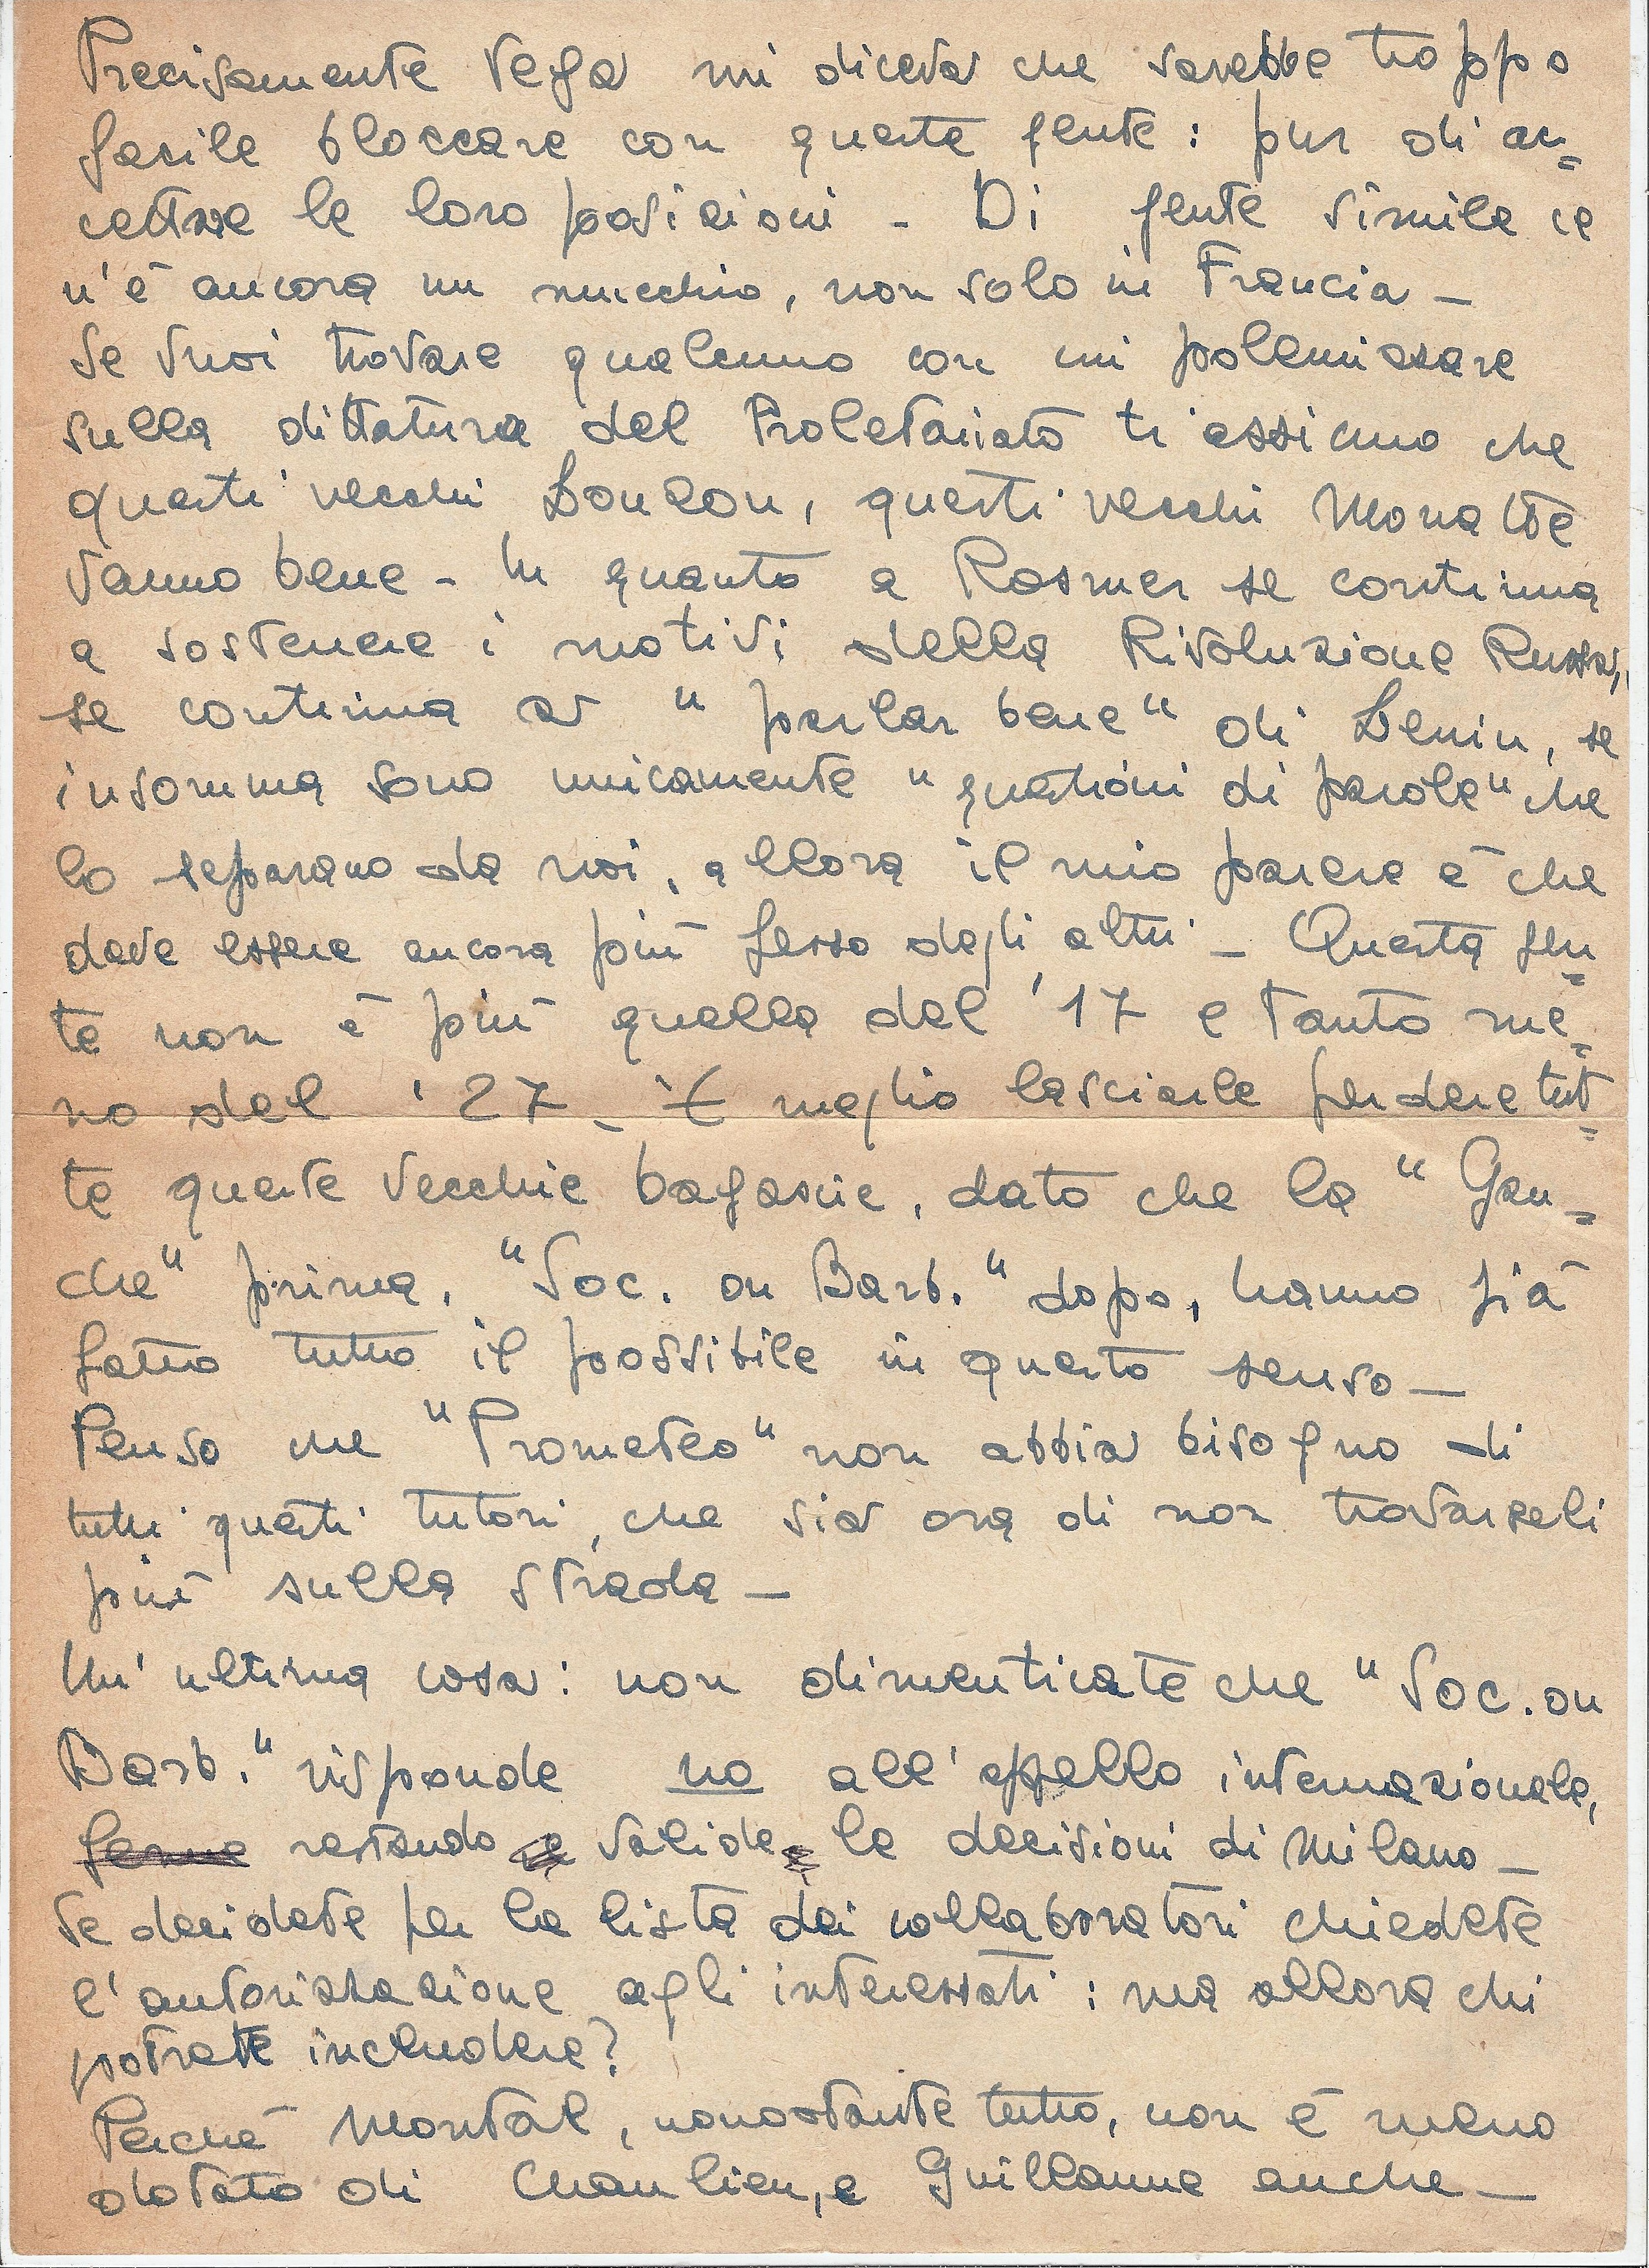 Precisamente Vega mi diceva che sarebbe troppo
facile bloccare con questa gente: pur di ac=
cettare le loro posizioni - Di gente simile ce
n'è ancora un mucchio, non solo in Francia -
Se vuoi trovare qualcuno con cui polemizzare
sulla dittatura del Proletariato ti assicuro che
questi vecchi Louzon, questi vecchi Monatte
vanno bene - In quanto a Rosmer se continua
a sostenere i motivi della Rivoluzione Russa,
se continua a "parlar bene" di Lenin, se
insomma sono unicamente "questioni di parole" che
lo separano da noi, allora il mio parere è che
deve essere ancora più fesso degli altri - Questa gen=
te non è più quella del '17 e tanto me=
no del '27 - È meglio lasciarle perdere tut=
te queste vecchie bagascie, dato che la "Gau=
che" prima, "Soc. ou Barb." dopo, hanno già
fatto tutto il possibile in questo senso -
Penso che "Prometeo" non abbia bisogno di
tutti questi tutori, che sia ora di non trovarseli
più sulla strada -
Un'ultima cosa: non dimenticate che "Soc. ou
Barb." risponde no all'appello internazionale,
restando valide le decisioni di Milano -
Se decidete per la lista dei collaboratori chiedete
l'autorizzazione agli interessati: ma allora chi
potrete includere?
Perchè Montal, nonostante tutto, non è meno
dotato di Chaulieu, e Guillaume anche -